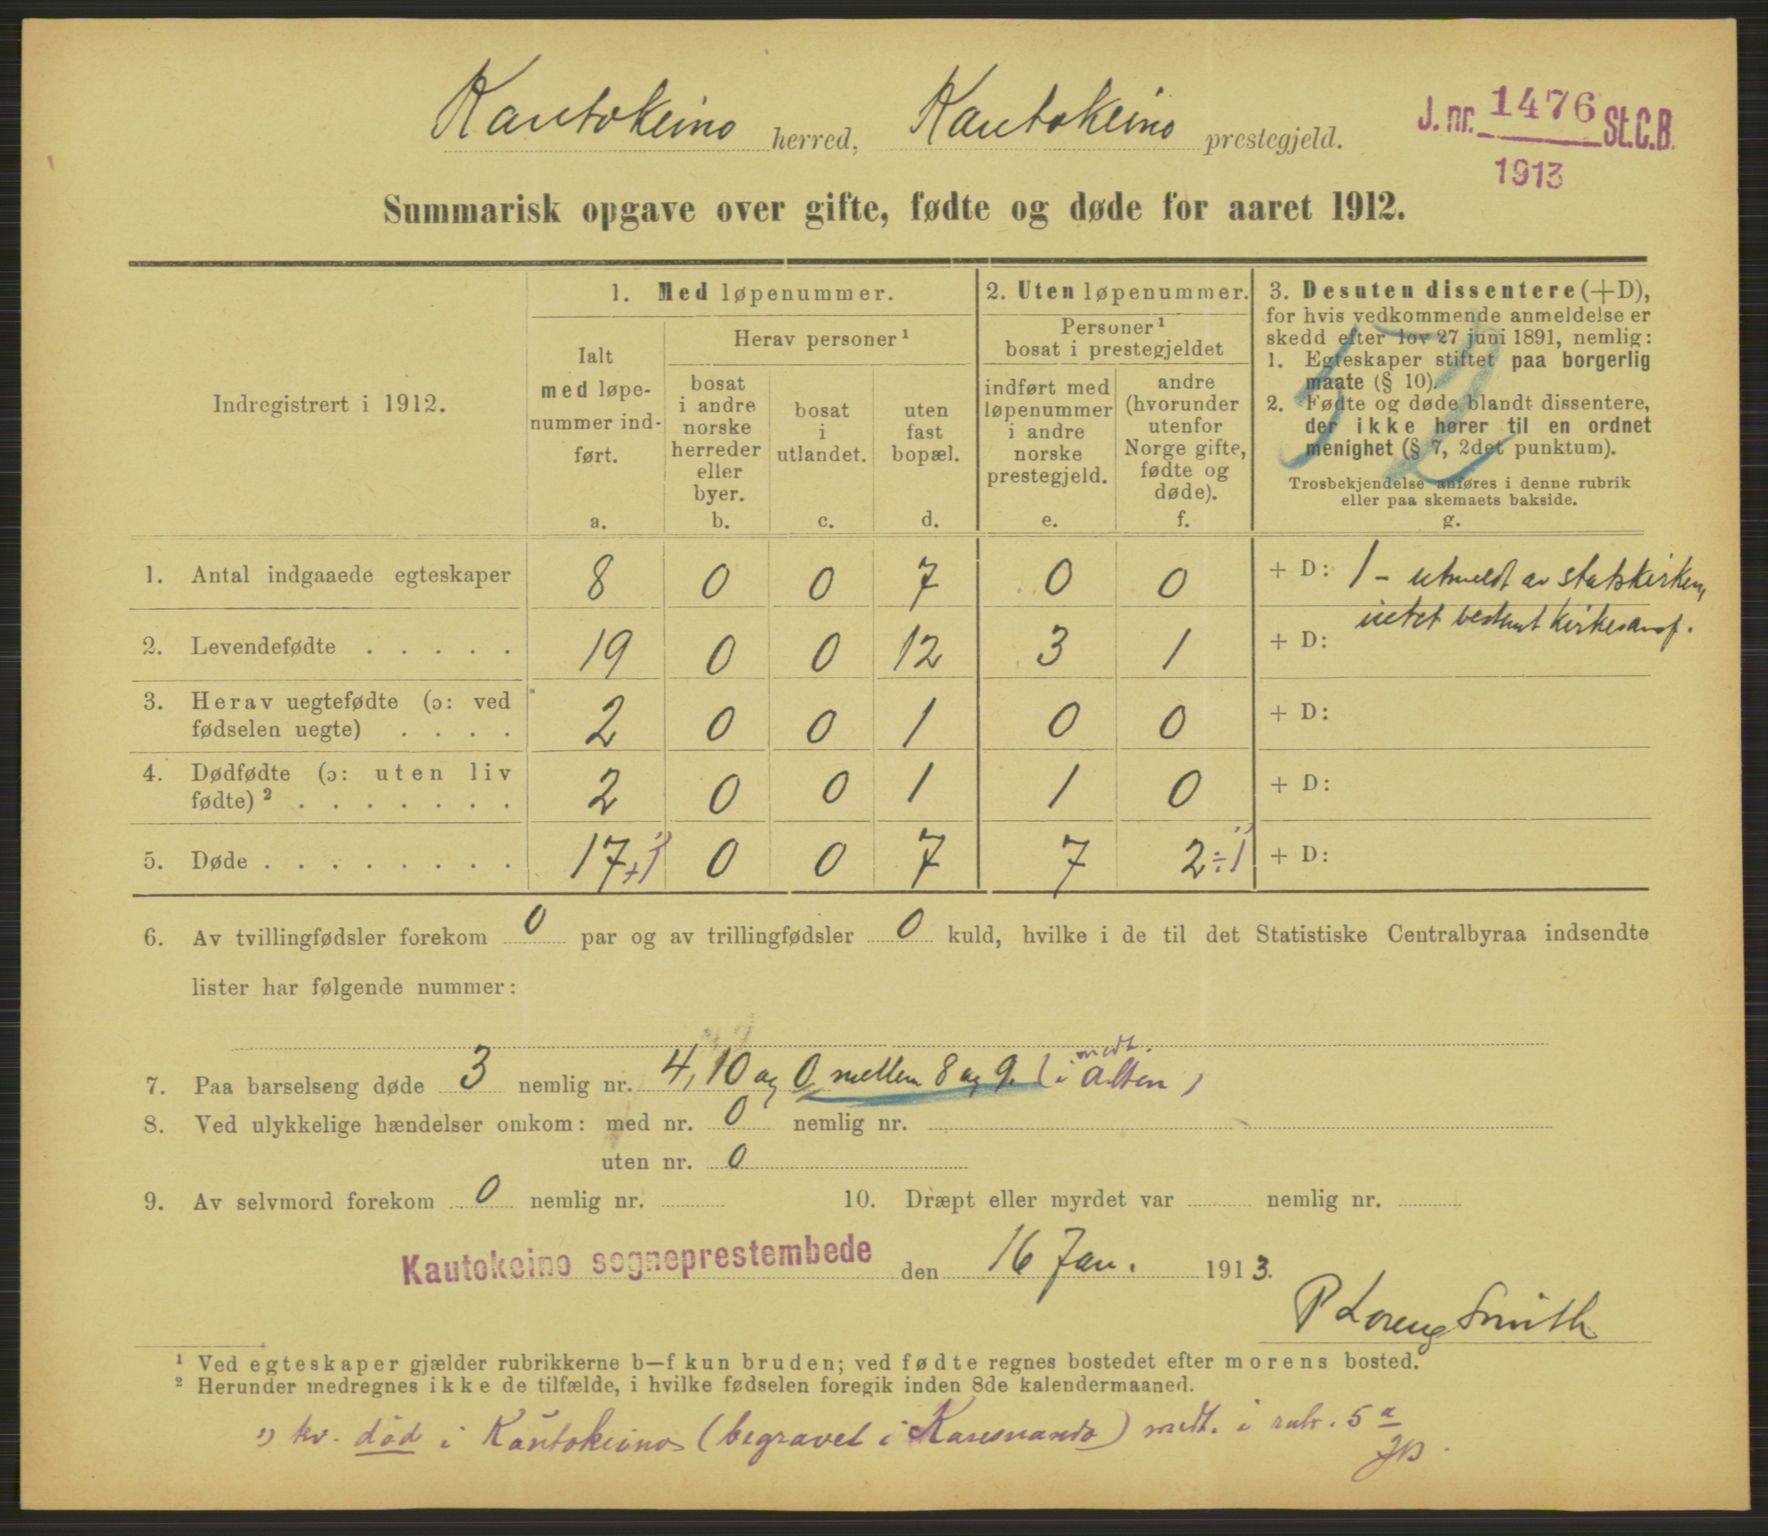 Kautokeino herred, Kautokeino prestegjeld.
J. nr. 1476 St.C.B.
1913
Summarisk opgave over gifte, fødte og døde for aaret 1912.
Indregistrert i 1912.
1. Med løpenummer.
Ialt
med løpe-
nummer ind-
ført.
a.
Herav personer ¹
bosat
i andre
norske
herreder
eller
byer.
b.
bosat
i
utlandet.
c.
uten
fast
bopæl.
d.
2. Uten løpenummer.
Personer ¹
bosat i prestegjeldet
indført med
løpenummer
i andre
norske
prestegjeld.
e.
andre
(hvorunder
utenfor
Norge gifte,
fødte og
døde).
f.
3. Desuten dissentere (+D),
for hvis vedkommende anmeldelse er
skedd efter lov 27 juni 1891, nemlig:
1. Egteskaper stiftet paa borgerlig
maate (§ 10).
2. Fødte og døde blandt dissentere,
der ikke hører til en ordnet
menighet (§ 7, 2det punktum).
Trosbekjendelse anføres i denne rubrik
eller paa skemaets bakside.
g.
52
1. Antal indgaaede egteskaper 8 0 0 7 0 0 + D: 1 - utmeldt av statskirken,
intet bestemt kirkesamf.
2. Levendefødte . . . . . 19 0 0 12 3 1 + D:
3. Herav uegtefødte (ɔ: ved
fødselen uegte) . . . . 2 0 0 1 0 0 + D:
4. Dødfødte (ɔ: uten liv
fødte) ² . . . . . . . 2 0 0 1 1 0 + D:
5. Døde . . . . . . . . 17+1 ¹) 0 0 7 7 2÷1 ¹) + D:
6. Av tvillingfødsler forekom 0 par og av trillingfødsler 0 kuld, hvilke i de til det Statistiske Centralbyraa indsendte
lister har følgende nummer:
7. Paa barselseng døde 3 nemlig nr. 4, 10 og 0 mellem 8 og 9. (medt. i Alten)
8. Ved ulykkelige hændelser omkom: med nr. 0 nemlig nr.
uten nr. 0
9. Av selvmord forekom 0 nemlig nr. 10. Dræpt eller myrdet var nemlig nr.
Kautokeino sogneprestembede den 16 Jan. 1913.
P Lorenz Smith
¹ Ved egteskaper gjælder rubrikkerne b—f kun bruden; ved fødte regnes bostedet efter morens bosted.
² Herunder medregnes ikke de tilfælde, i hvilke fødselen foregik inden 8de kalendermaaned.
¹) kv. död i Kautokeino (begravet i Karesuando) medt. i rubr. 5 a